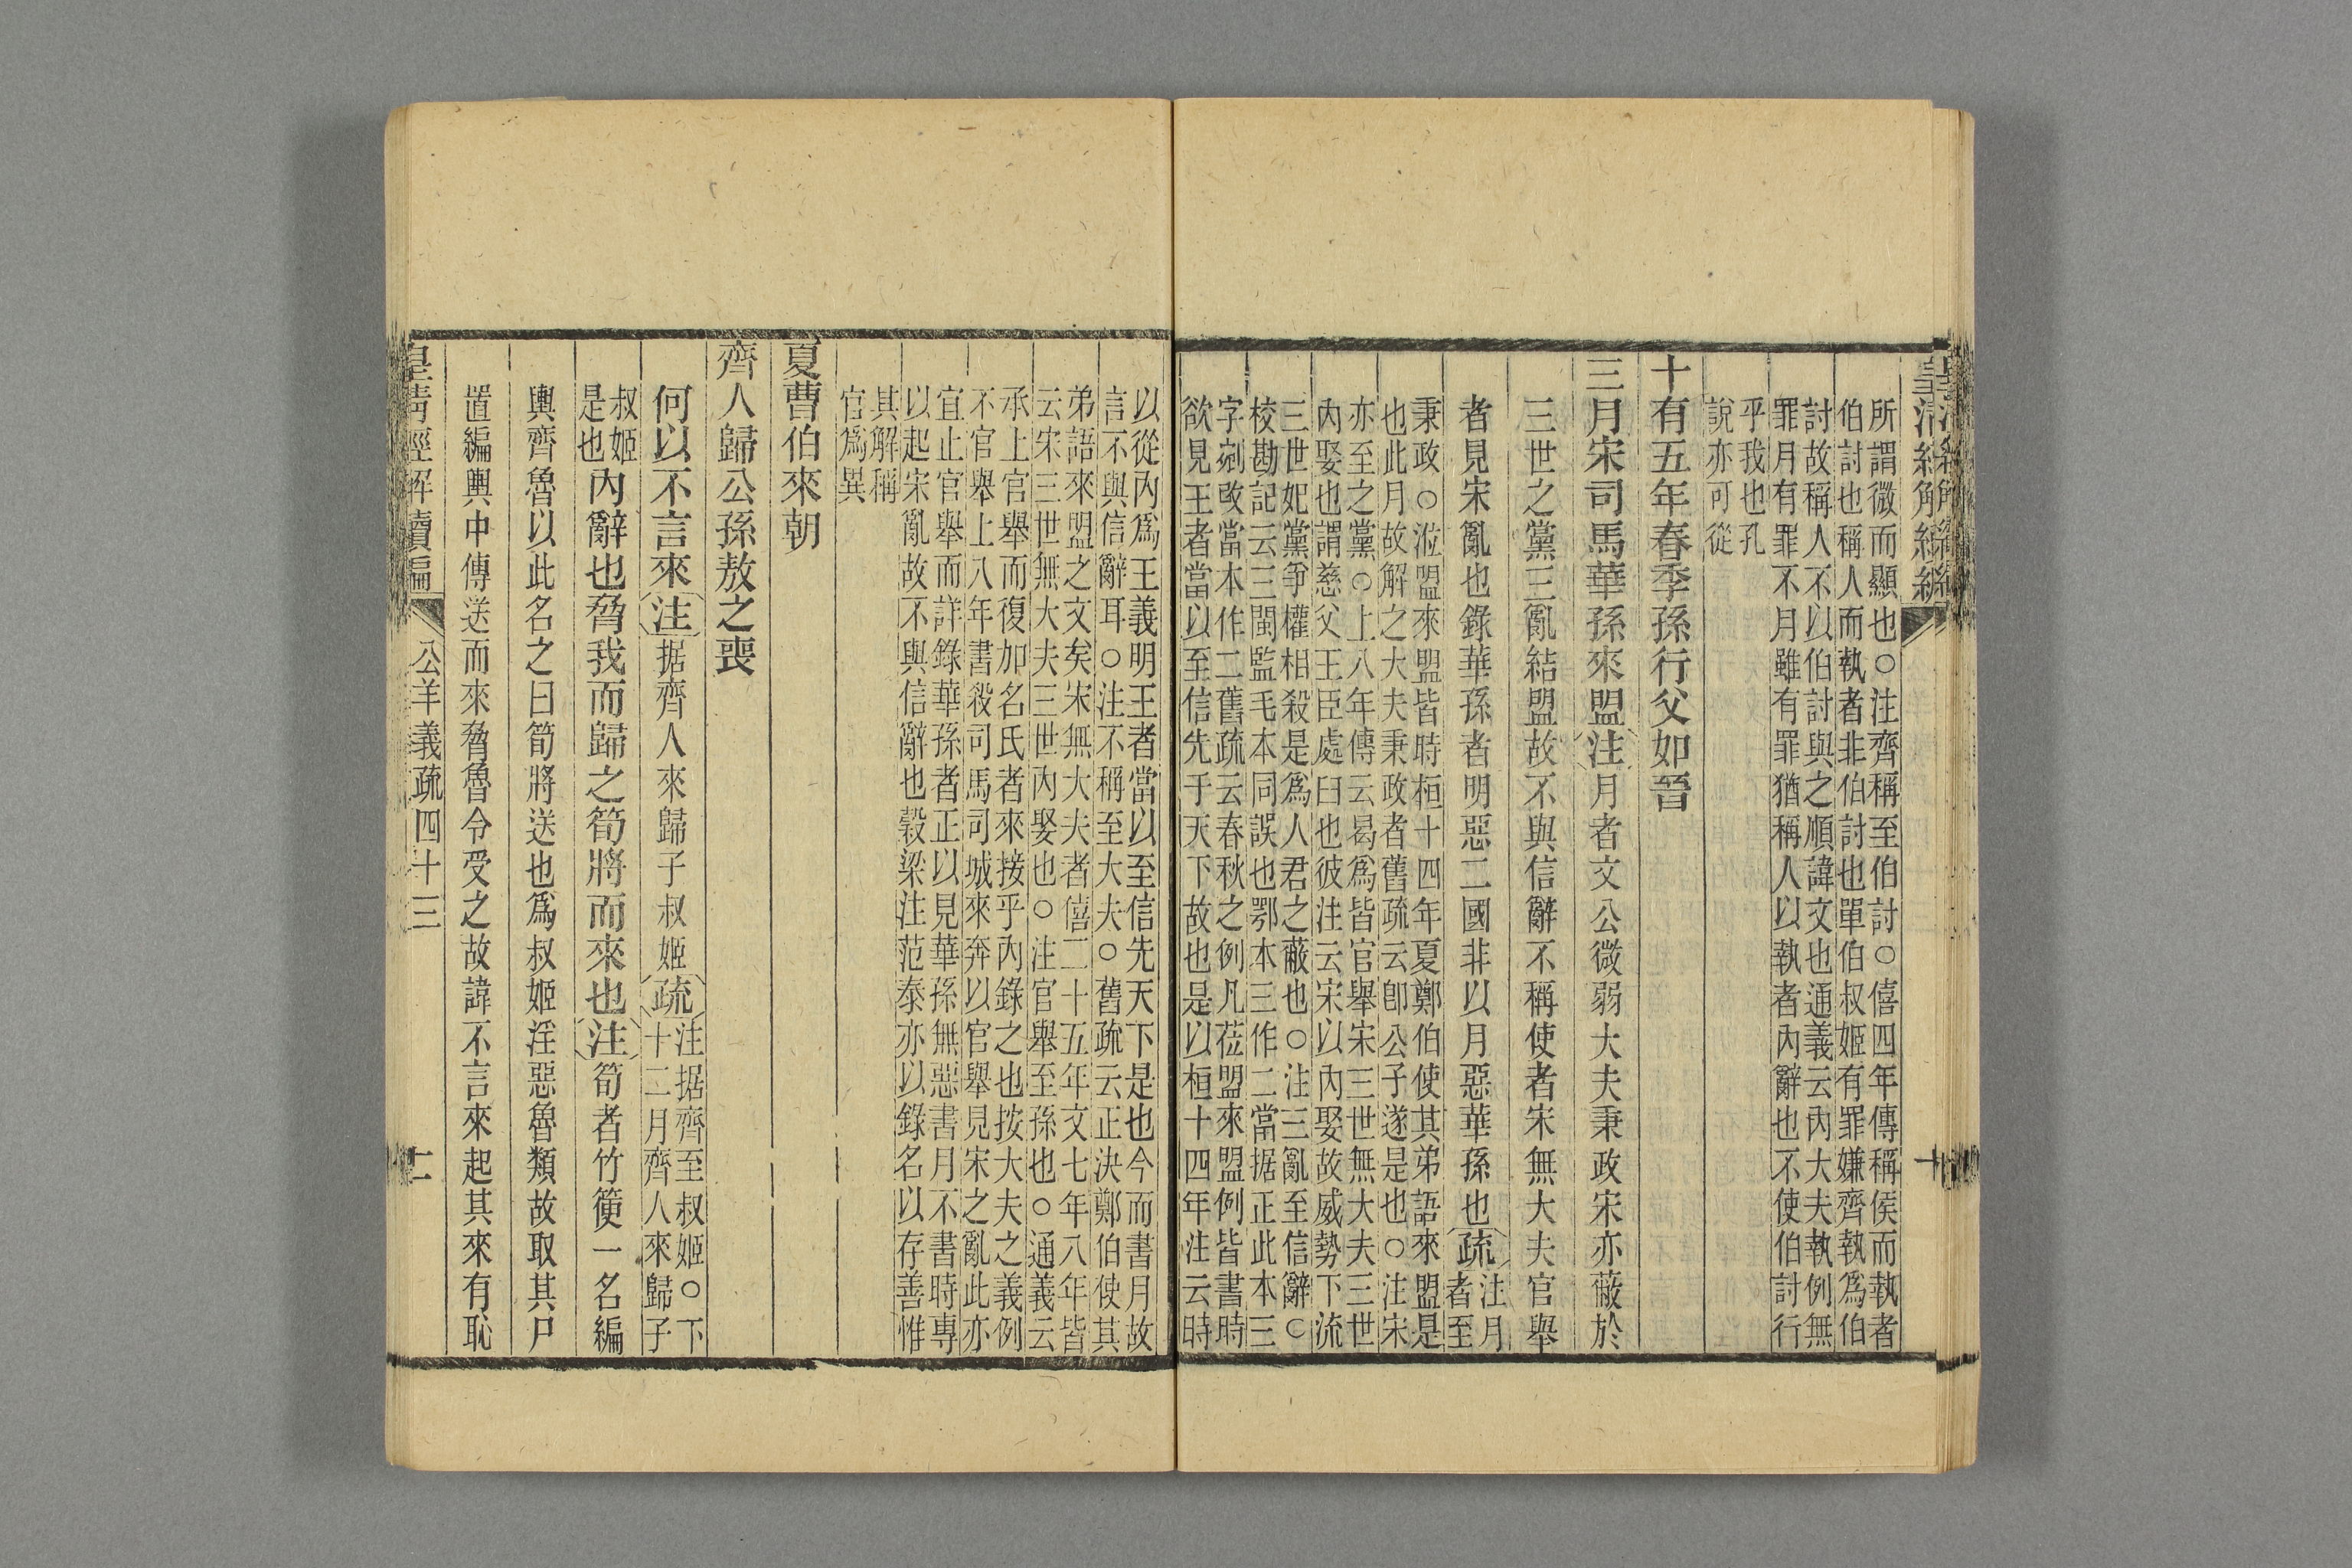 所謂微而顯也○注齊稱至伯討○僖四年傳稱侯而執者
伯討也稱人而執者非伯討也單伯叔姬有罪嫌齊執爲伯
討故稱人不以伯討與之順諱文也通義云內大夫執例無
罪月有罪不月雖有罪猶稱人以執者內辭也不使伯討行
乎我也孔
說亦可從
十有五年春季孫行父如晉
三月宋司馬華孫來盟注月者文公微弱大夫秉政宋亦蔽於
三世之黨三亂結盟故不與信辭不稱使者宋無大夫官舉
者見宋亂也錄華孫者明惡二國非以月惡華孫也疏
注月
者至
秉政○涖盟來盟皆時桓十四年夏鄭伯使其弟語來盟是
也此月故解之大夫秉政者舊疏云卽公子遂是也○注宋
亦至之黨○上八年傳云曷爲皆官舉宋三世無大夫三世
內娶也謂慈父王臣處臼也彼注云宋以內娶故威勢下流
三世妃黨爭權相殺是爲人君之蔽也○注三亂至信辭○
校勘記云三閩監毛本同誤也鄂本三作二當据正此本三
字剜改當本作二舊疏云春秋之例凡莅盟來盟例皆書時
欲見王者當以至信先于天下故也是以桓十四年注云時
以從內爲王義明王者當以至信先天下是也今而書月故
言不與信辭耳○注不稱至大夫○舊疏云正決鄭伯使其
弟語來盟之文矣宋無大夫者僖二十五年文七年八年皆
云宋三世無大夫三世內娶也○注官舉至孫也○通義云
承上官舉而復加名氏者來接乎內錄之也按大夫之義例
不官舉上八年書殺司馬司城來奔以官舉見宋之亂此亦
宜止官舉而詳錄華孫者正以見華孫無惡書月不書時專
以起宋亂故不與信辭也穀梁注范泰亦以錄名以存善惟
其解稱
官爲異
夏曹伯來朝
齊人歸公孫敖之喪
何以不言來注据齊人來歸子叔姬疏
注据齊至叔姬○下
十二月齊人來歸子
叔姬
是也
內辭也脅我而歸之筍將而來也注筍者竹箯一名編
輿齊魯以此名之曰筍將送也爲叔姬淫惡魯類故取其尸
置編輿中傳送而來脅魯令受之故諱不言來起其來有恥
皇清經解續編
公羊義疏四十三